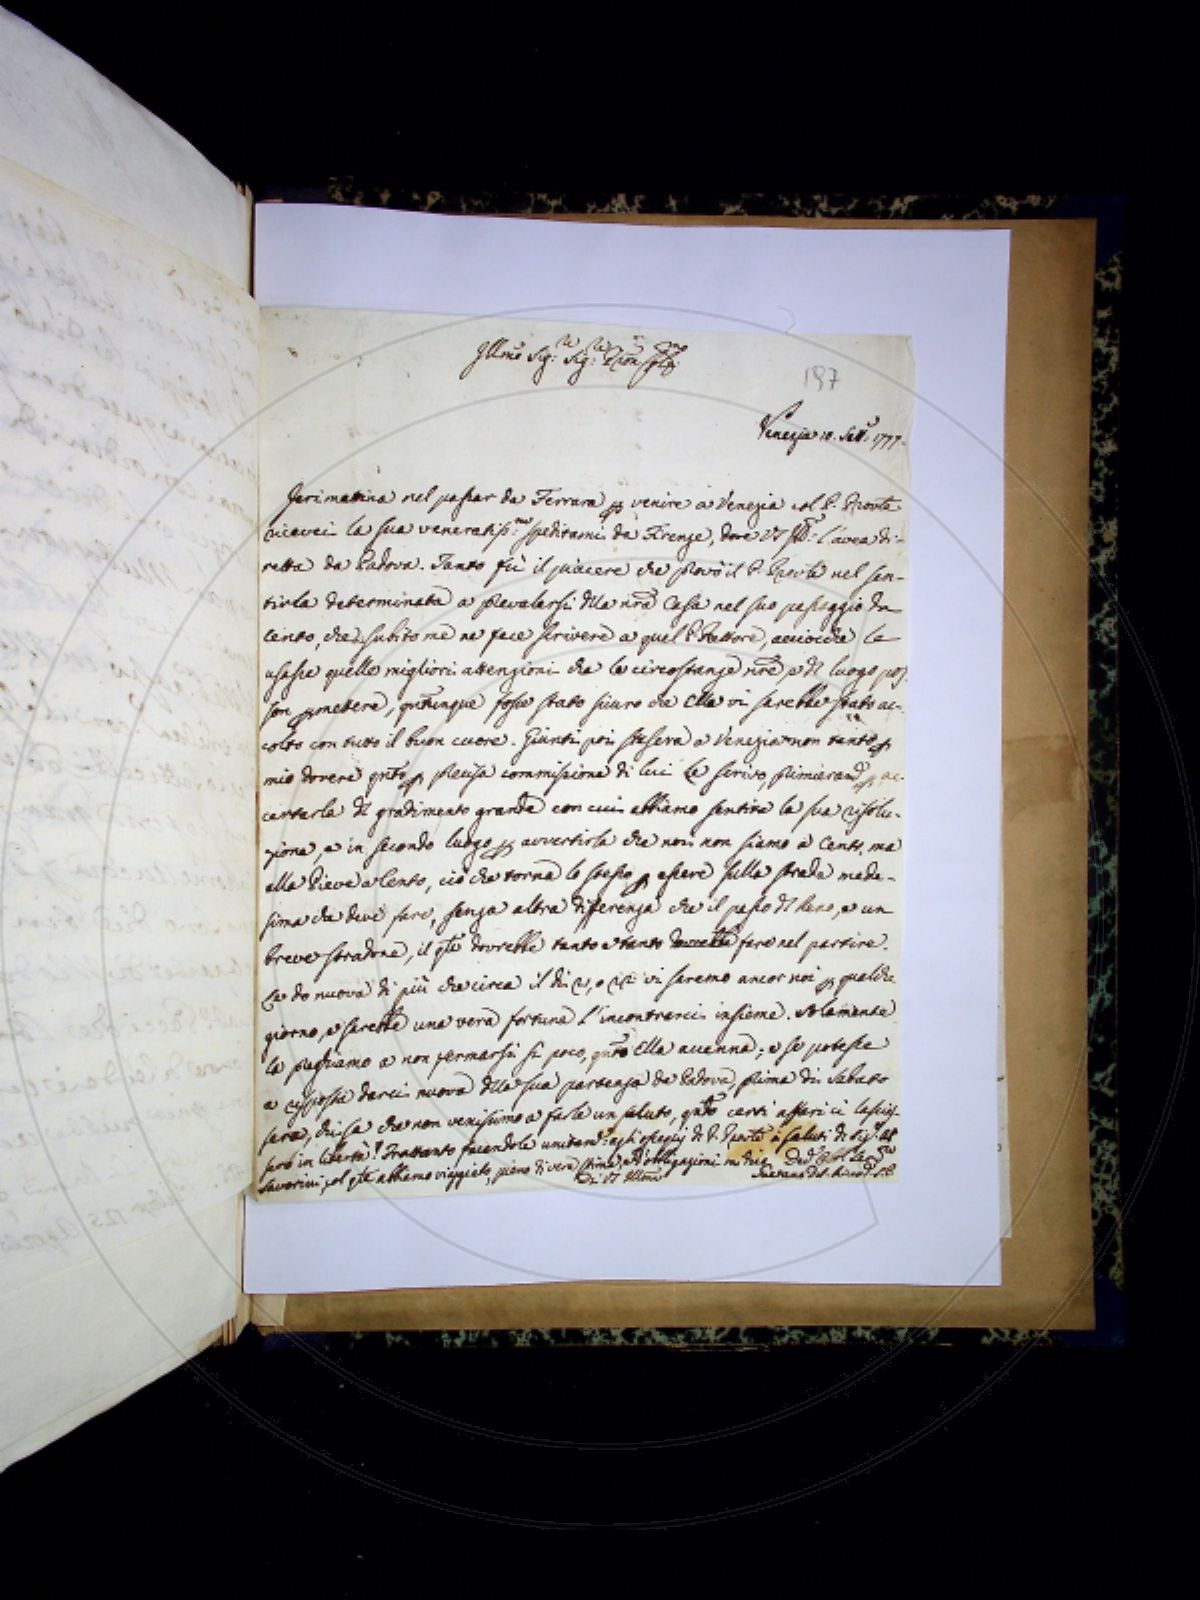 Illmo Sig.re Sig.re Pron Colmo
197
Venezia 10. Sett.e 1777.
Jeri matina nel passar da Ferrara per venire a Venezia col P. Provle
ricevei la sua veneratiss.ma speditami da Firenze, dove VS Illma l'avea di-
retta da Padova. Tanto fù il piacere che provò il P. Provle nel sen-
tirla determinata a prevalersi della nra Casa nel suo passaggio da
Cento, che subito me ne fece scrivere a quel P. Rettore, acciocchè le
usasse quelle migliori attenzioni che le circostanze nre e del luogo pos-
son permetere, quantunque fosse stato sicuro che Ella vi sarebbe stato ac-
colto con tutto il buon cuore. Giunti poi stasera a Venezia non tanto per
mio dovere qnto per precisa commissione di lui Le scrivo, primierame per ac-
certarla del gradimento grande con cui abbiamo sentita la sua risolu-
zione, e in secondo luogo per avvertirla che noi non siamo a Cento, ma
alla Pieve a Cento, ciò che torna lo stesso per essere sulla strada mede-
sima che deve fare, senza altra differenza che il passo del Reno, e un
breve stradone, il qle dovrebbe tanto e tanto fare nel partire.
Le do nuova di più che circa il dì vi saremo ancor noi per qualche
giorno, e sarebbe una vera fortuna l'incontrarci insieme. Solamente
la preghiamo a non fermarsi sì poco, qnto Ella accenna; e se potesse
a risposta darci nuova della sua partenza da Padova prima di Sabato
sera, chi sa che non venissimo a farle un saluto, qndo certi affari ci lascias-
sero in libertà! Frattanto facendole unitame agli ossequj di P. Provle i saluti di Sig.
Saverini, col qle abbiamo viaggiato, pieno di vera stima, ed obbligazioni mi dico
Di VS Illma
Gaetano del